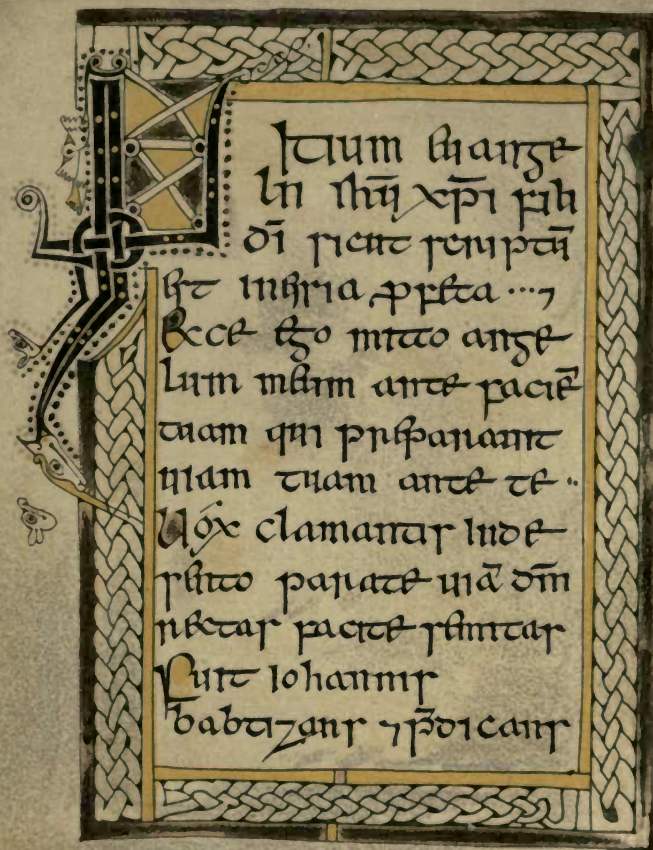 INItium euange
lii ihū xp̄i filii
dī sicut scriptū
est in esaia ꝓfeta ...,
Ecce ego mitto ange
lum meum ante faciē
tuam qui preparauit
uiam tuam ante te..
Uox clamantis inde
serto parate uiā dn̄i
rectas facite semitas
Fuit iohannis
babtizans ⁊ p̄dicans